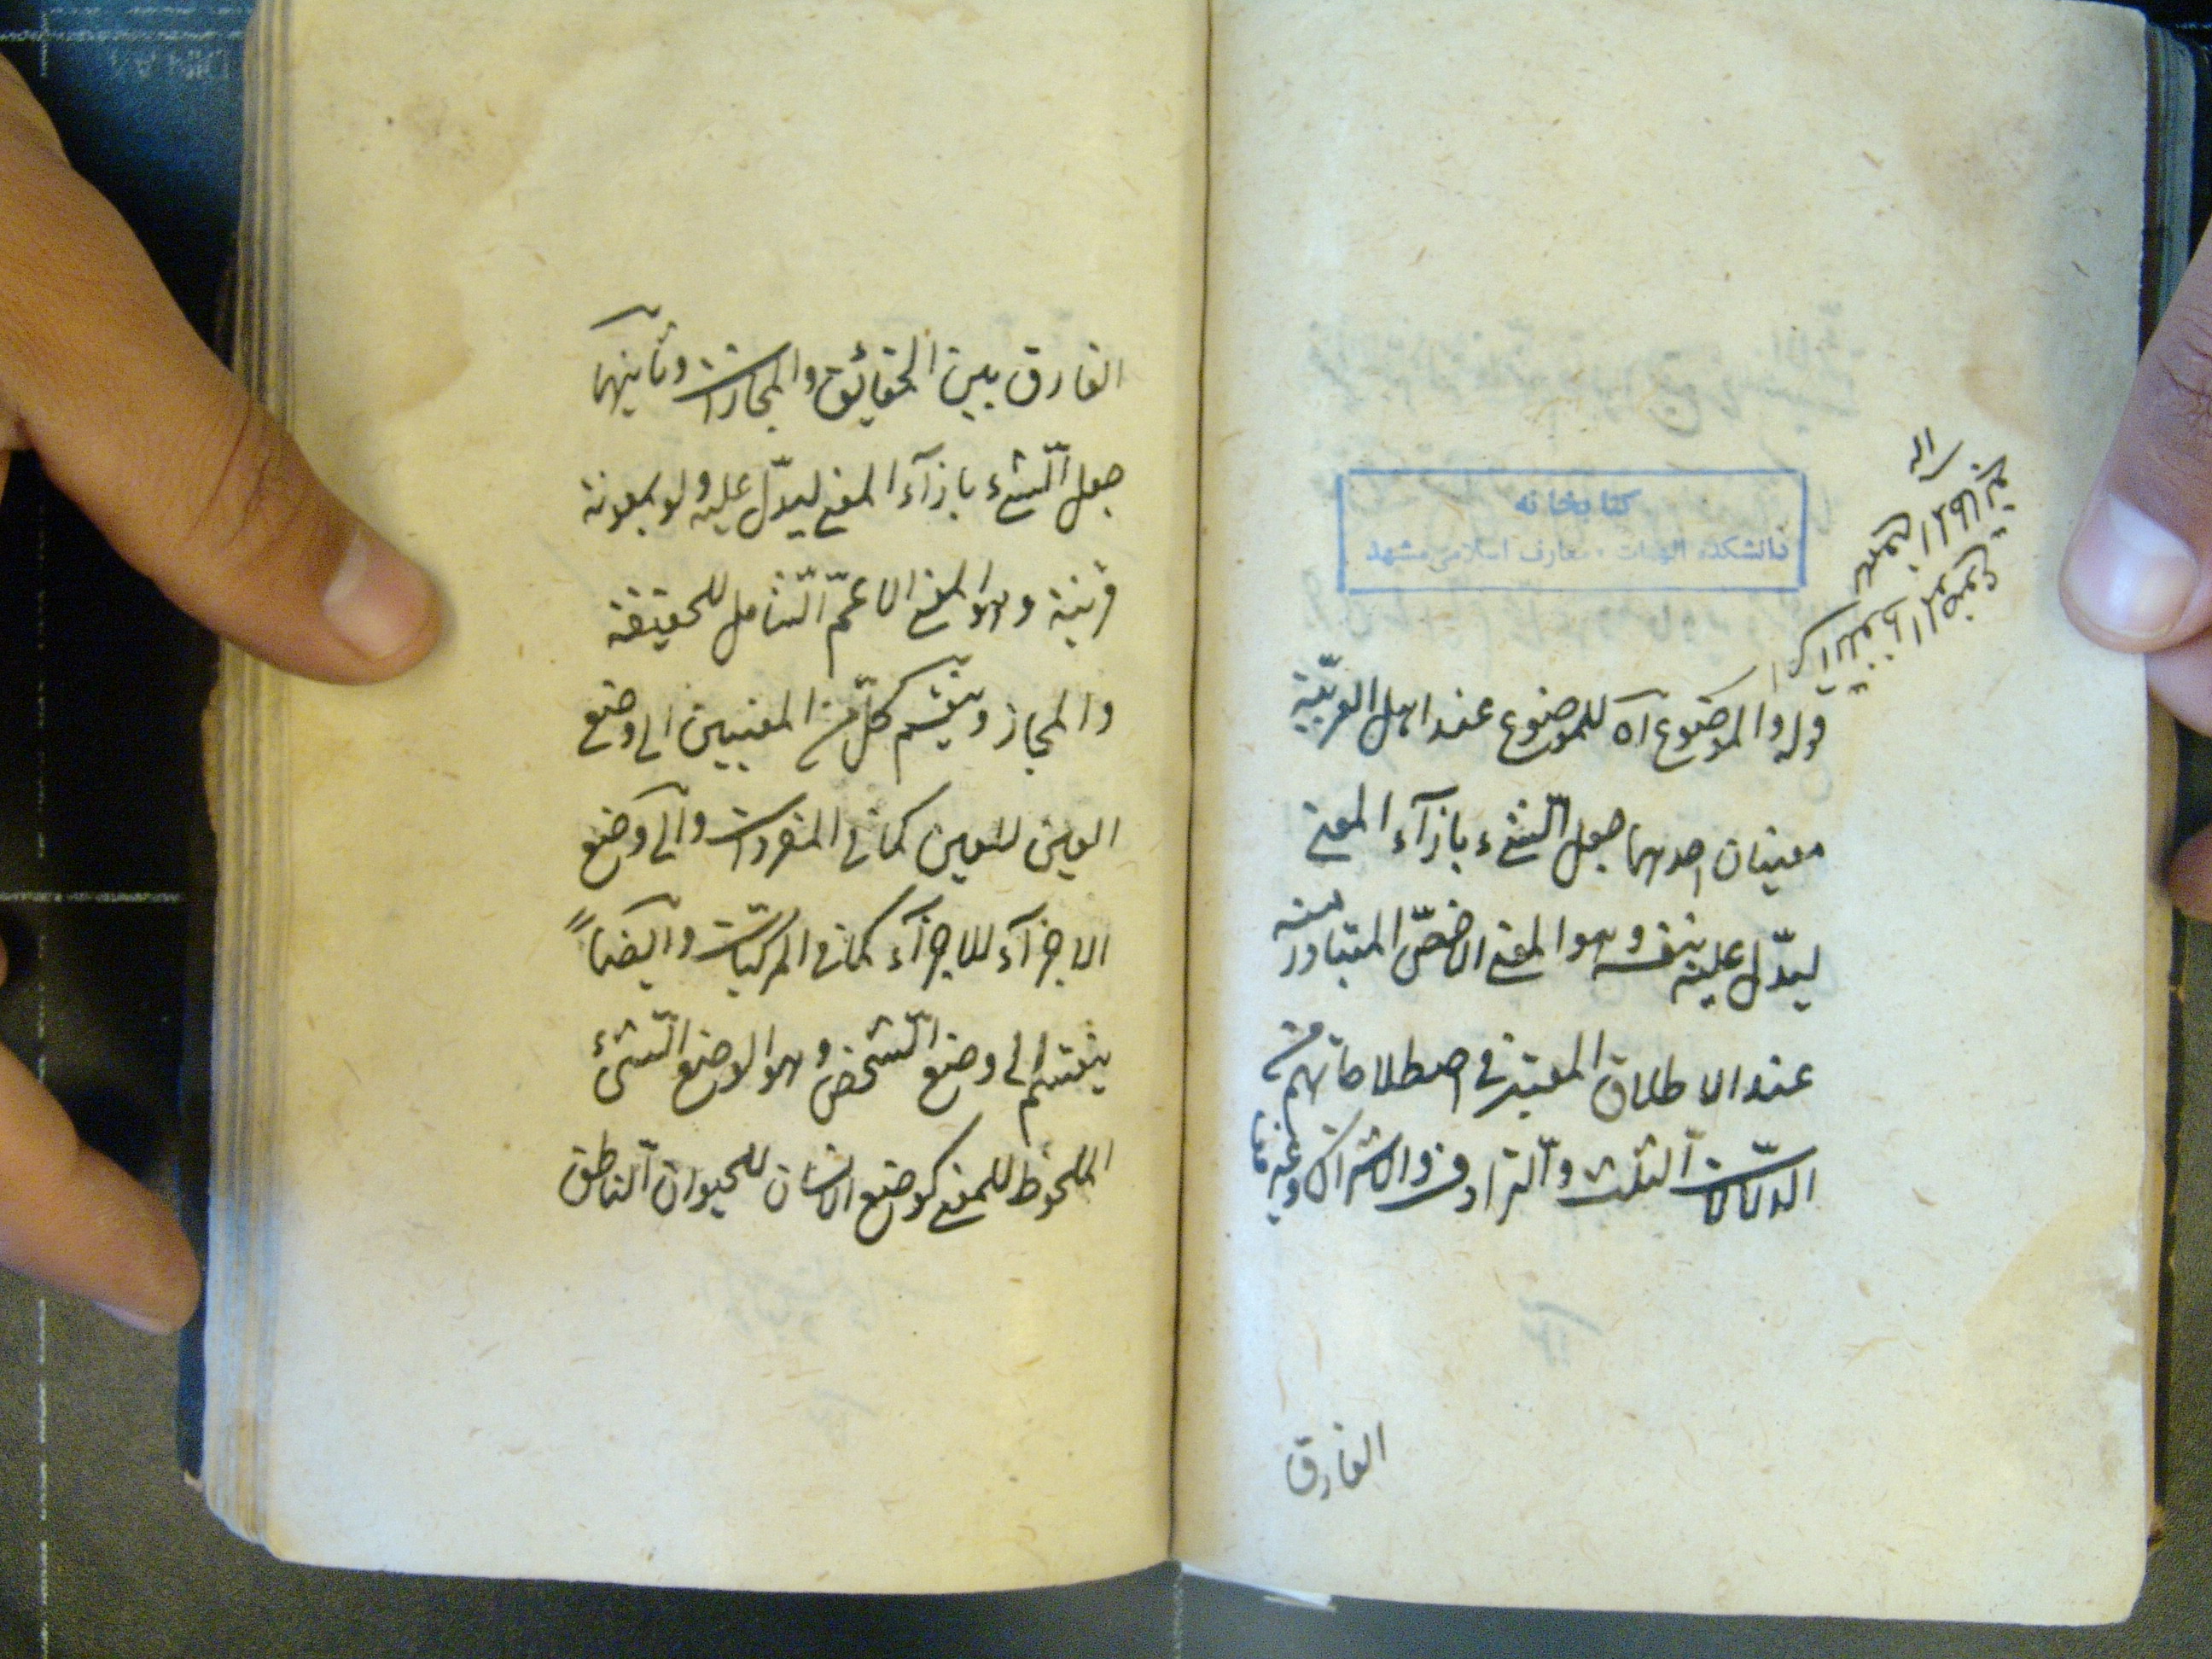 كتابخانه
دانشكده الهيات و معارف اسلامى مشهد
قوله والموضوع آه للموضوع عند اهل العربيّة
معنيان احدهما جعل الشّىء بازآء المعنى
ليدّل عليه بنفسه وهو المعنى الاخصّ المتبادر منه
عند الاطلاق المعتبر فى اصطلاحاتهم من
الدلالات الثلث والترادف والاشتراك وغيرها
الفارق
الفارق بين الحقائق والمجازات وثانيهما
جعل الشّىء بازآء المعنى ليدّل عليه ولو بمعونة
قرينة وهو المعنى الاعمّ الشّامل للحقيقة
والمجاز وينقسم كلّ من المعنيين الى وضع
العين للعين كما فى المفردات والى وضع
الاجزآء للاجزآء كما فى المركبّات وايضاً
ينقسم الى وضع الشّخص وهو الوضع الشّىء
الملحوظ للمعنى كوضع الانسان للحيوان النّاطق